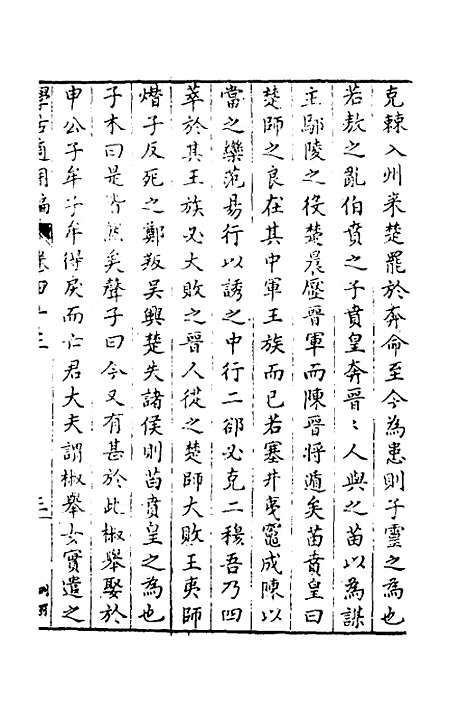 克棘入州来楚罷於奔命至今為患則子靈之為也
若敖之亂伯賁之子賁皇奔晉〻人與之苗以為謀
主鄢陵之役楚晨壓晉軍而陳晉將遁矣苗賁皇曰
楚師之良在其中軍王族而已若塞井夷竈成陳以
當之欒范易行以誘之中行二郤必克二穆吾乃四
萃於其王族必大敗之晉人從之楚師大敗王夷師
熸子反死之鄭叛吳興楚失諸侯則苗賁皇之為也
子木曰是皆然矣聲子曰今又有甚於此椒舉娶於
申公子牟子牟得戾而亡君大夫謂椒舉女實遣之
學古適用編
卷四十三
三